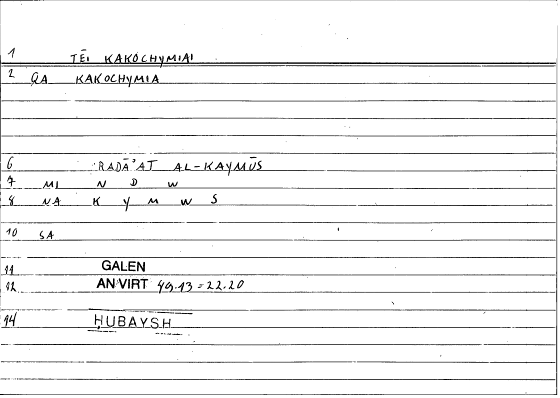 1 TĒI KAKOCHYMIAI
2 QA KAKOCHYMIA
6 RADĀ'AT AL-KAYMŪS
7 MI N D W
8 NA K Y M W S
10 SA
11 GALEN
12 AN VIRT 49.13 = 22.20
14 ḤUBAYSH